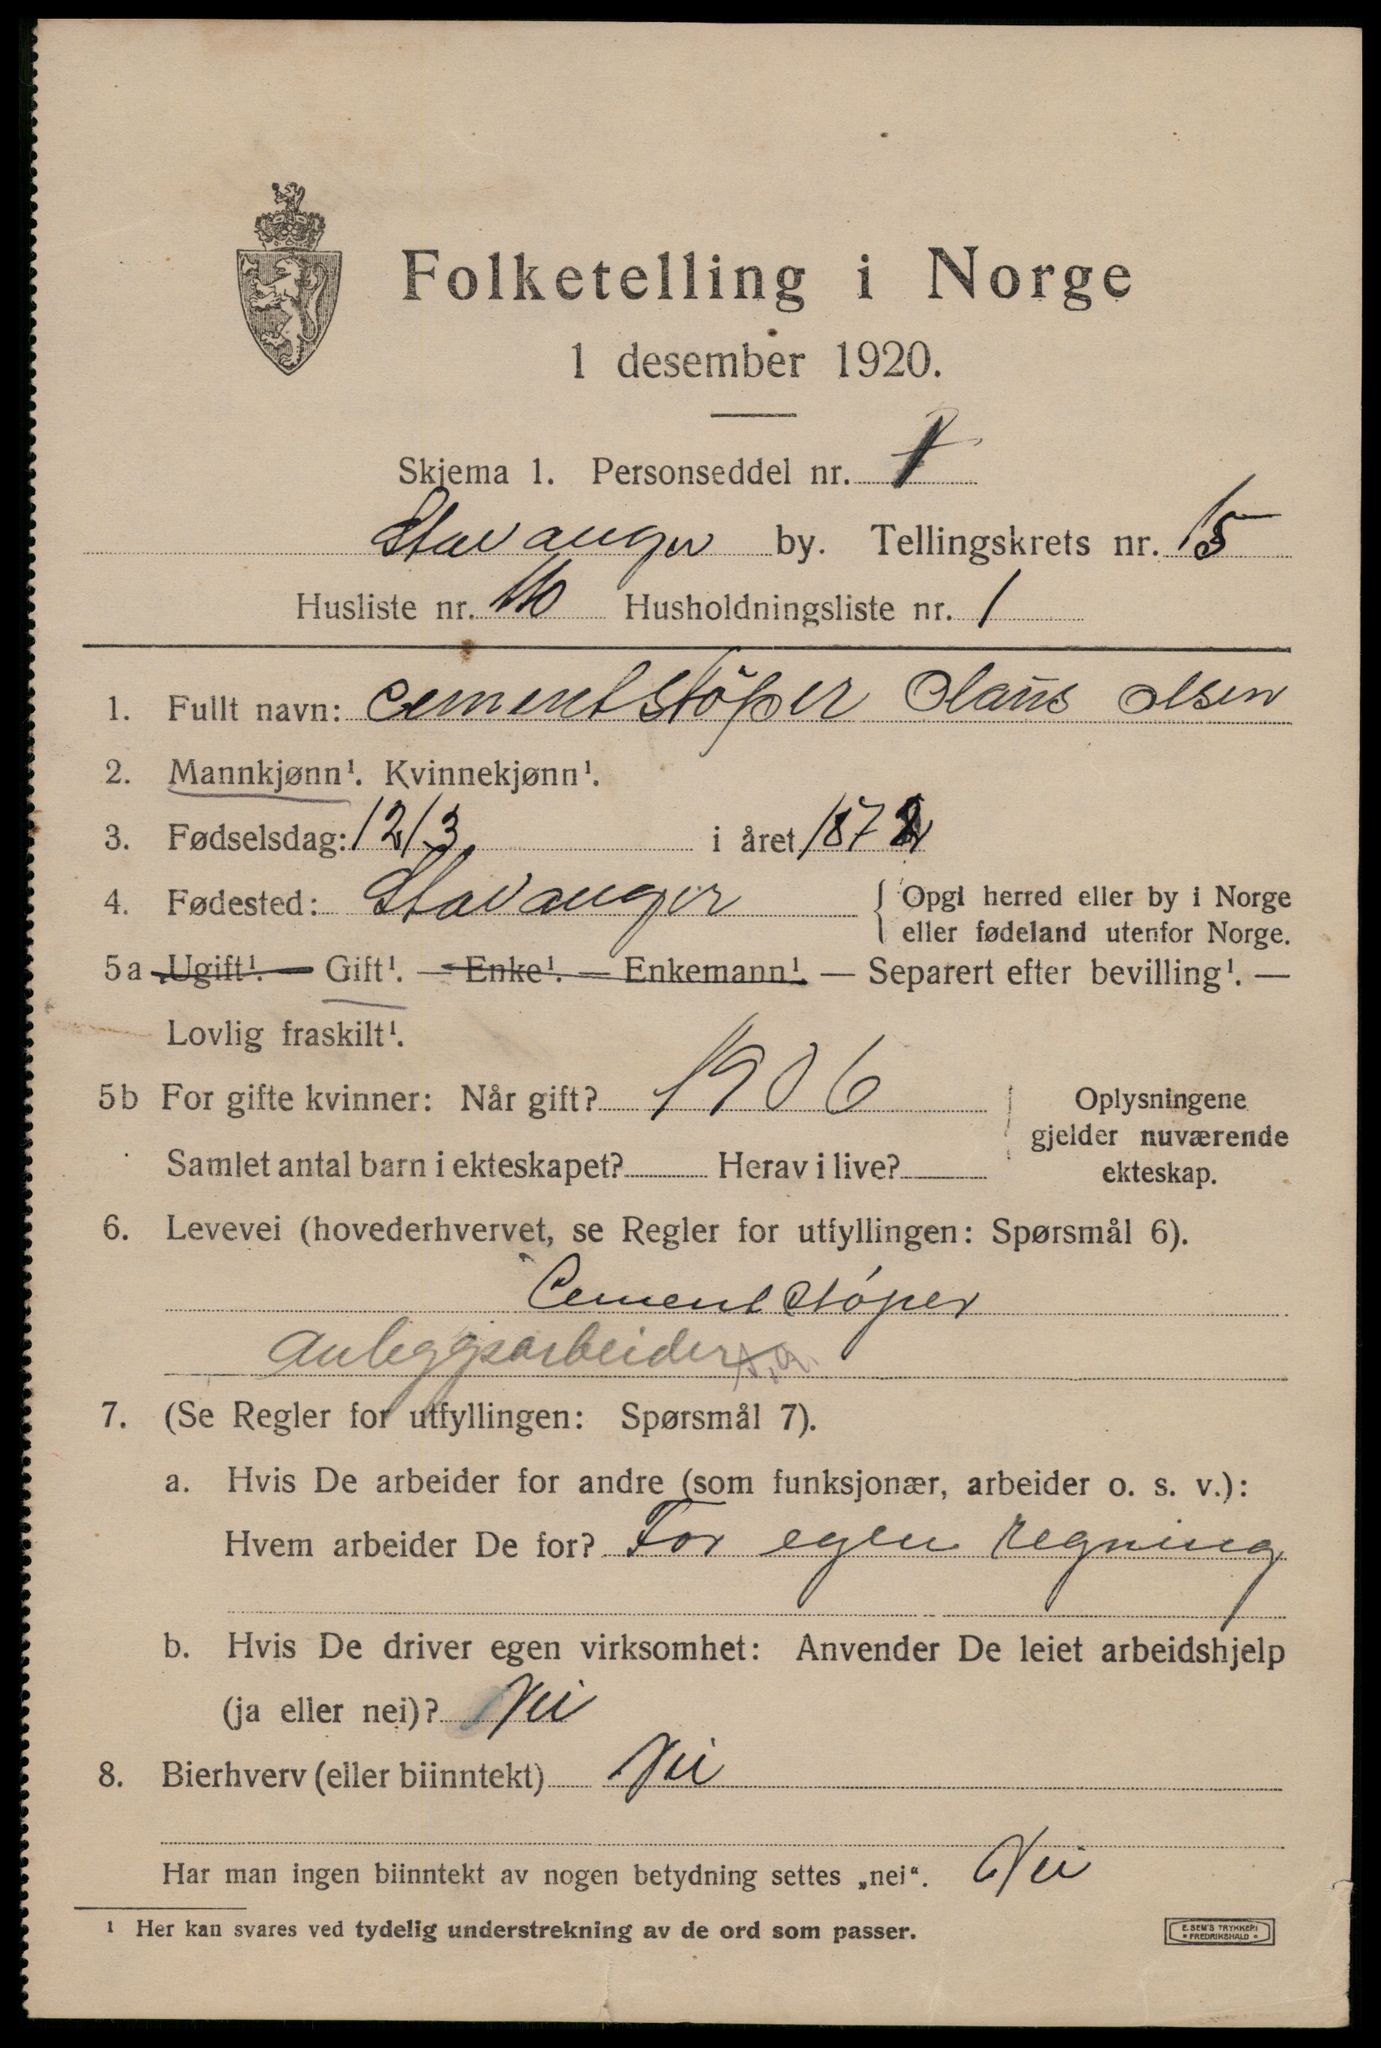 Folketelling i Norge
1 desember 1920.
Skjema 1. Personseddel nr. 1
Stavanger by. Tellingskrets nr. 15
Husliste nr. Husholdningsliste nr. 1
1. Fullt navn: Cementstöper Olaus Olsen
2. Mannkjønn¹. Kvinnekjønn¹.
3. Fødselsdag: 12/3 i året 1872
4. Fødested: Stavanger { Opgi herred eller by i Norge
eller fødeland utenfor Norge.
5a Ugift¹. — Gift¹. — Enke¹. — Enkemann¹. — Separert efter bevilling¹. —
Lovlig fraskilt¹.
5b For gifte kvinner: Når gift? 1906
Samlet antal barn i ekteskapet? Herav i live?
Oplysningene
gjelder nuværende
ekteskap.
6. Levevei (hovederhvervet, se Regler for utfyllingen: Spørsmål 6).
Cementstøper
Anleggsarbeider
7. (Se Regler for utfyllingen: Spørsmål 7).
a. Hvis De arbeider for andre (som funksjonær, arbeider o. s. v.):
Hvem arbeider De for? For egen regning
b. Hvis De driver egen virksomhet: Anvender De leiet arbeidshjelp
(ja eller nei)? Nei
8. Bierhverv (eller biinntekt) Nei
Har man ingen biinntekt av nogen betydning settes „nei“. Nei
¹ Her kan svares ved tydelig understrekning av de ord som passer.
E. SEM'S TRYKKERI
FREDRIKSHALD